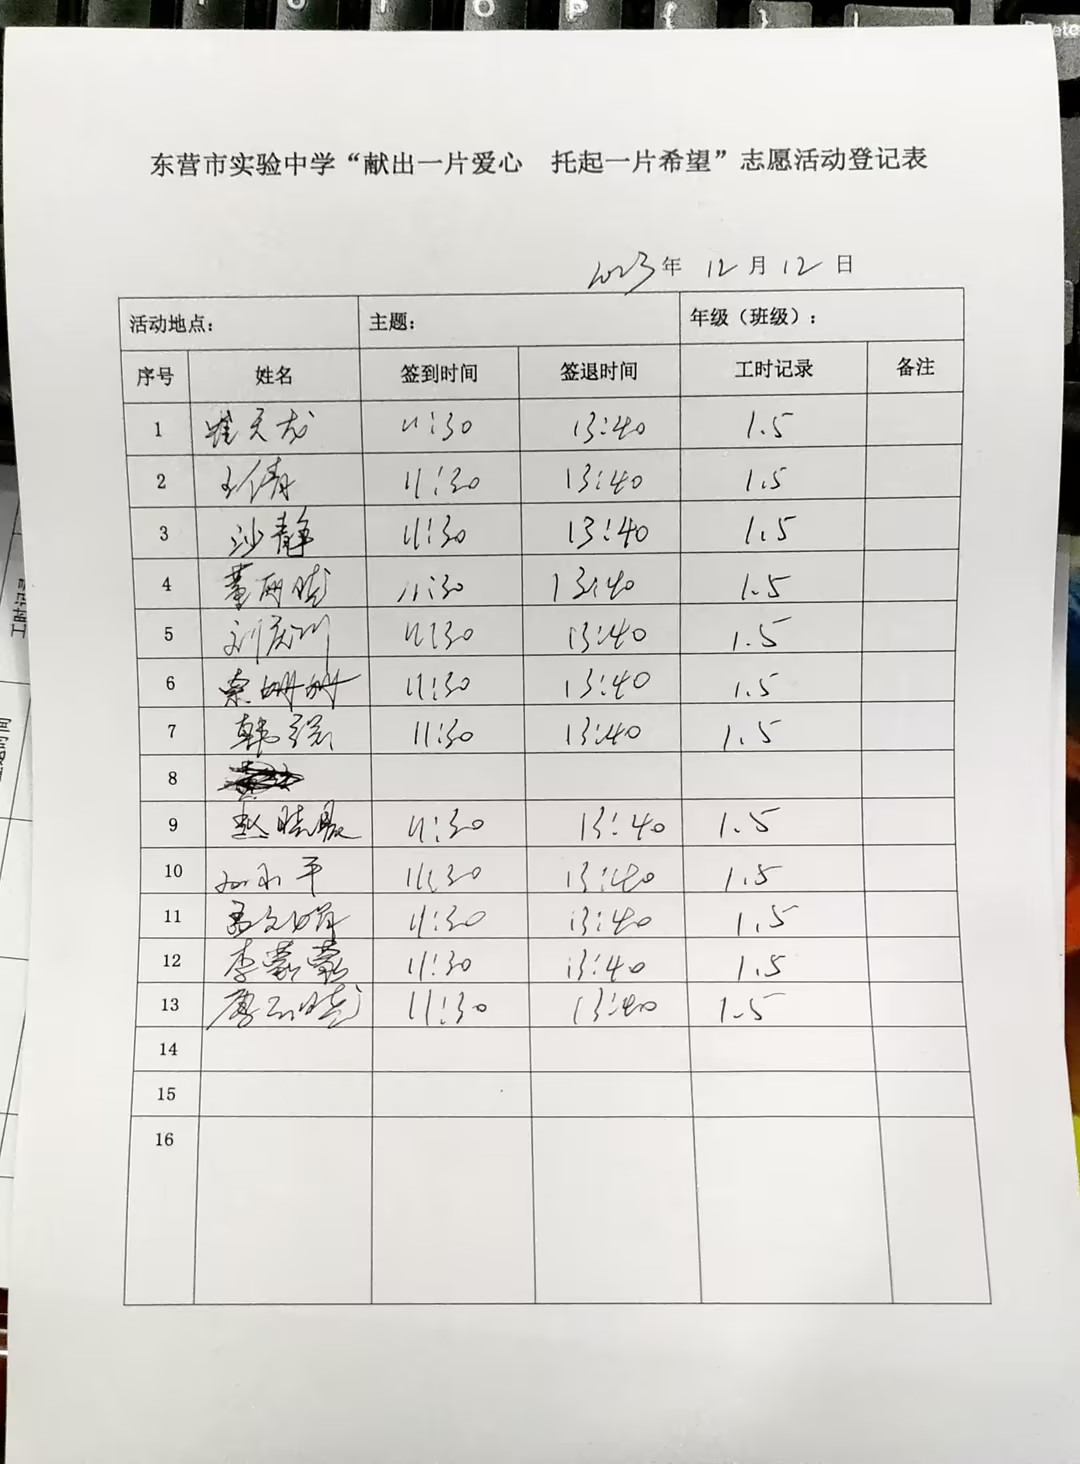 东营市实验中学“献出一片爱心 托起一片希望”志愿活动登记表
2023年 12月12日
活动地点: 主题: 年级（班级）:
序号 姓名 签到时间 签退时间 工时记录 备注
1 崔天龙 11:30 13:40 1.5
2 王倩 11:30 13:40 1.5
3 沙静 11:30 13:40 1.5
4 董雨晓 11:30 13:40 1.5
5 刘庆川 11:30 13:40 1.5
6 索姗姗 11:30 13:40 1.5
7 韩强 11:30 13:40 1.5
8
9 赵晓晨 11:30 13:40 1.5
10 平 11:30 13:40 1.5
11 孟文娟 11:30 13:40 1.5
12 李蒙蒙 11:30 13:40 1.5
13 晓 11:30 13:40 1.5
14
15
16